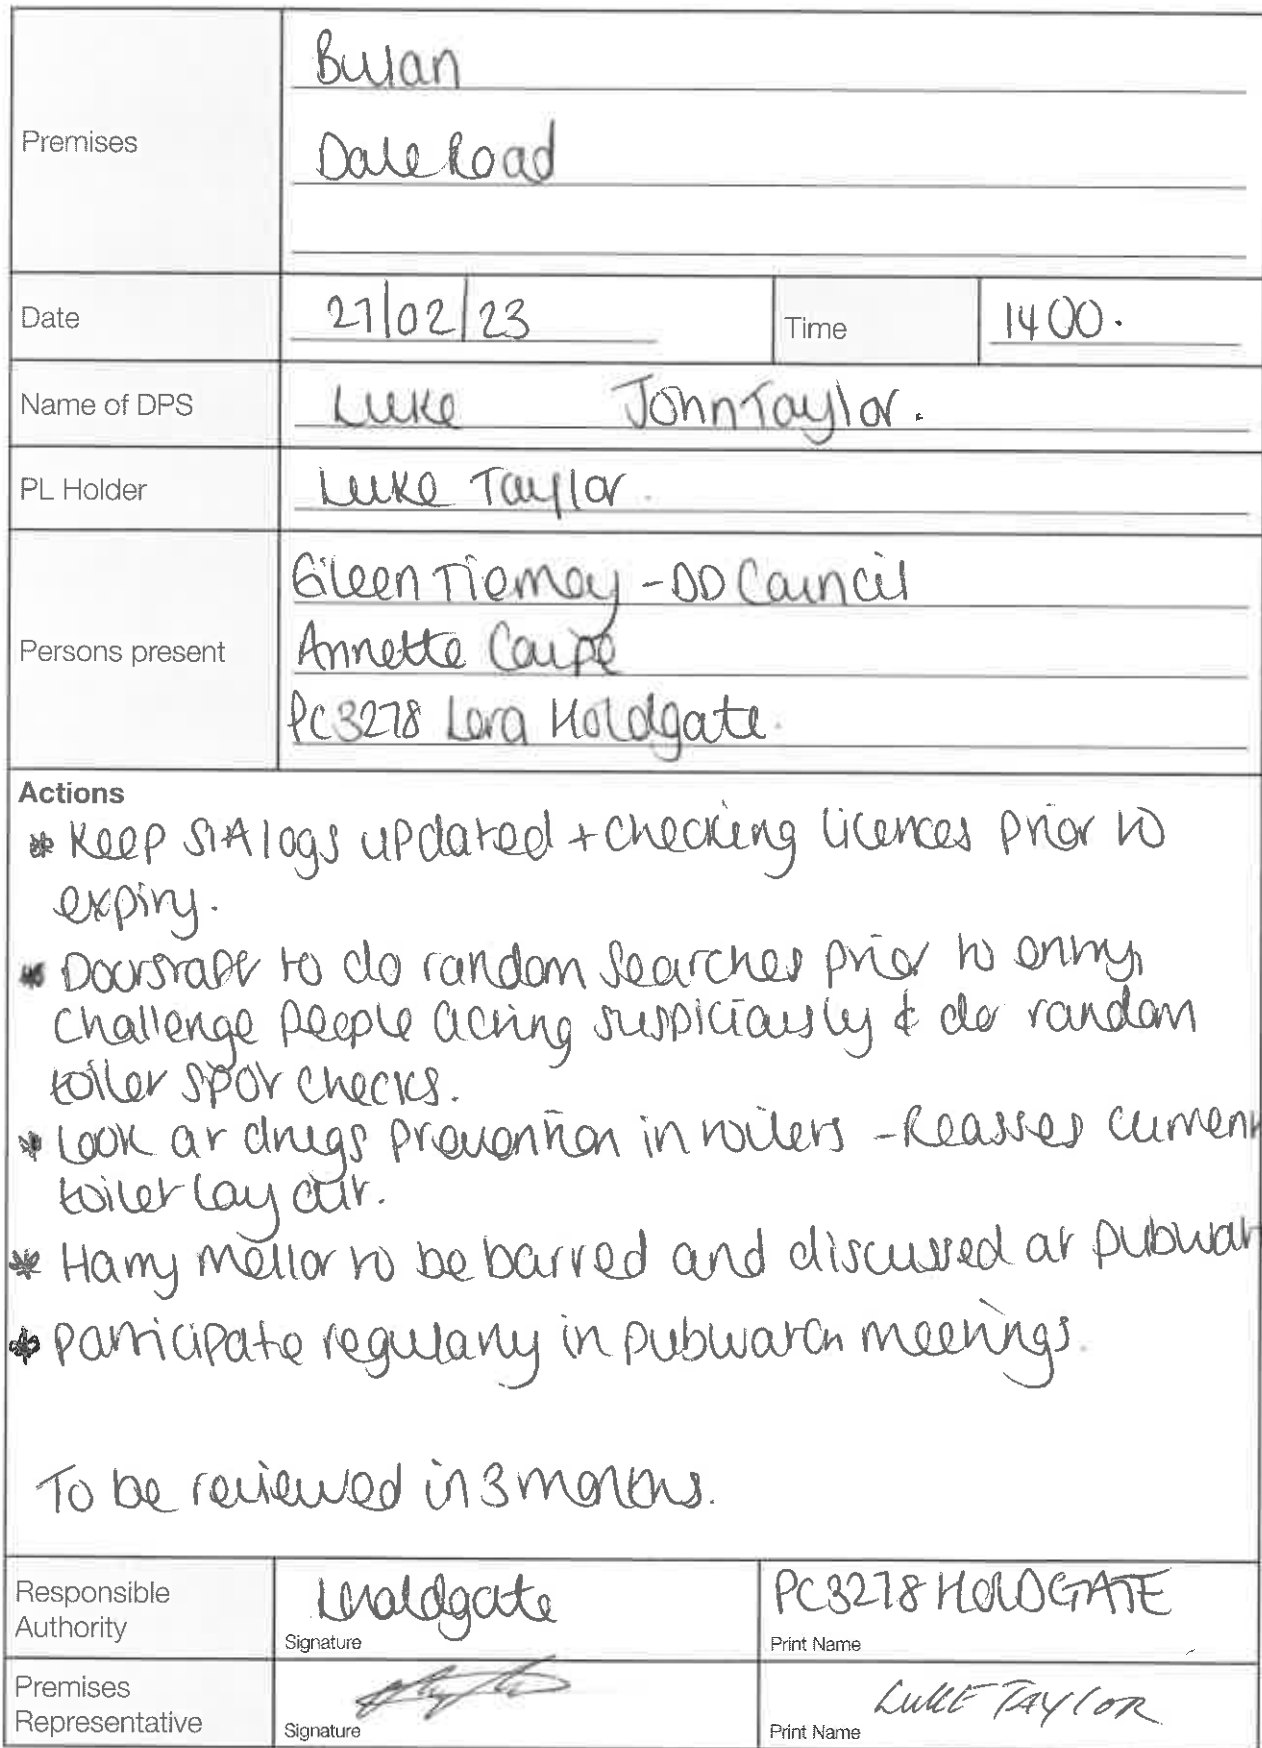 Premises
Bulan
Dale Road
Date 27/02/23 Time 1400.
Name of DPS Luke John Taylor.
PL Holder Luke Taylor.
Persons present
Eileen Tierney - DD Council
Annette Coupe
PC3278 Lera Holdgate.
Actions
* Keep SIA logs updated + checking licences prior to
expiry.
* Doorstaff to do random searches prior to entry,
challenge people acting suspiciously & do random
toilet spot checks.
* Look at drugs prevention in toilets - Reasses current
toilet lay out.
* Harry Mellor to be barred and discussed at pubwat
* Participate regulary in pubwatch meetings.
To be reviewed in 3 months.
Responsible Authority
LHoldgate
Signature
PC3278 HOLDGATE
Print Name
Premises Representative
Signature
LUKE TAYLOR
Print Name